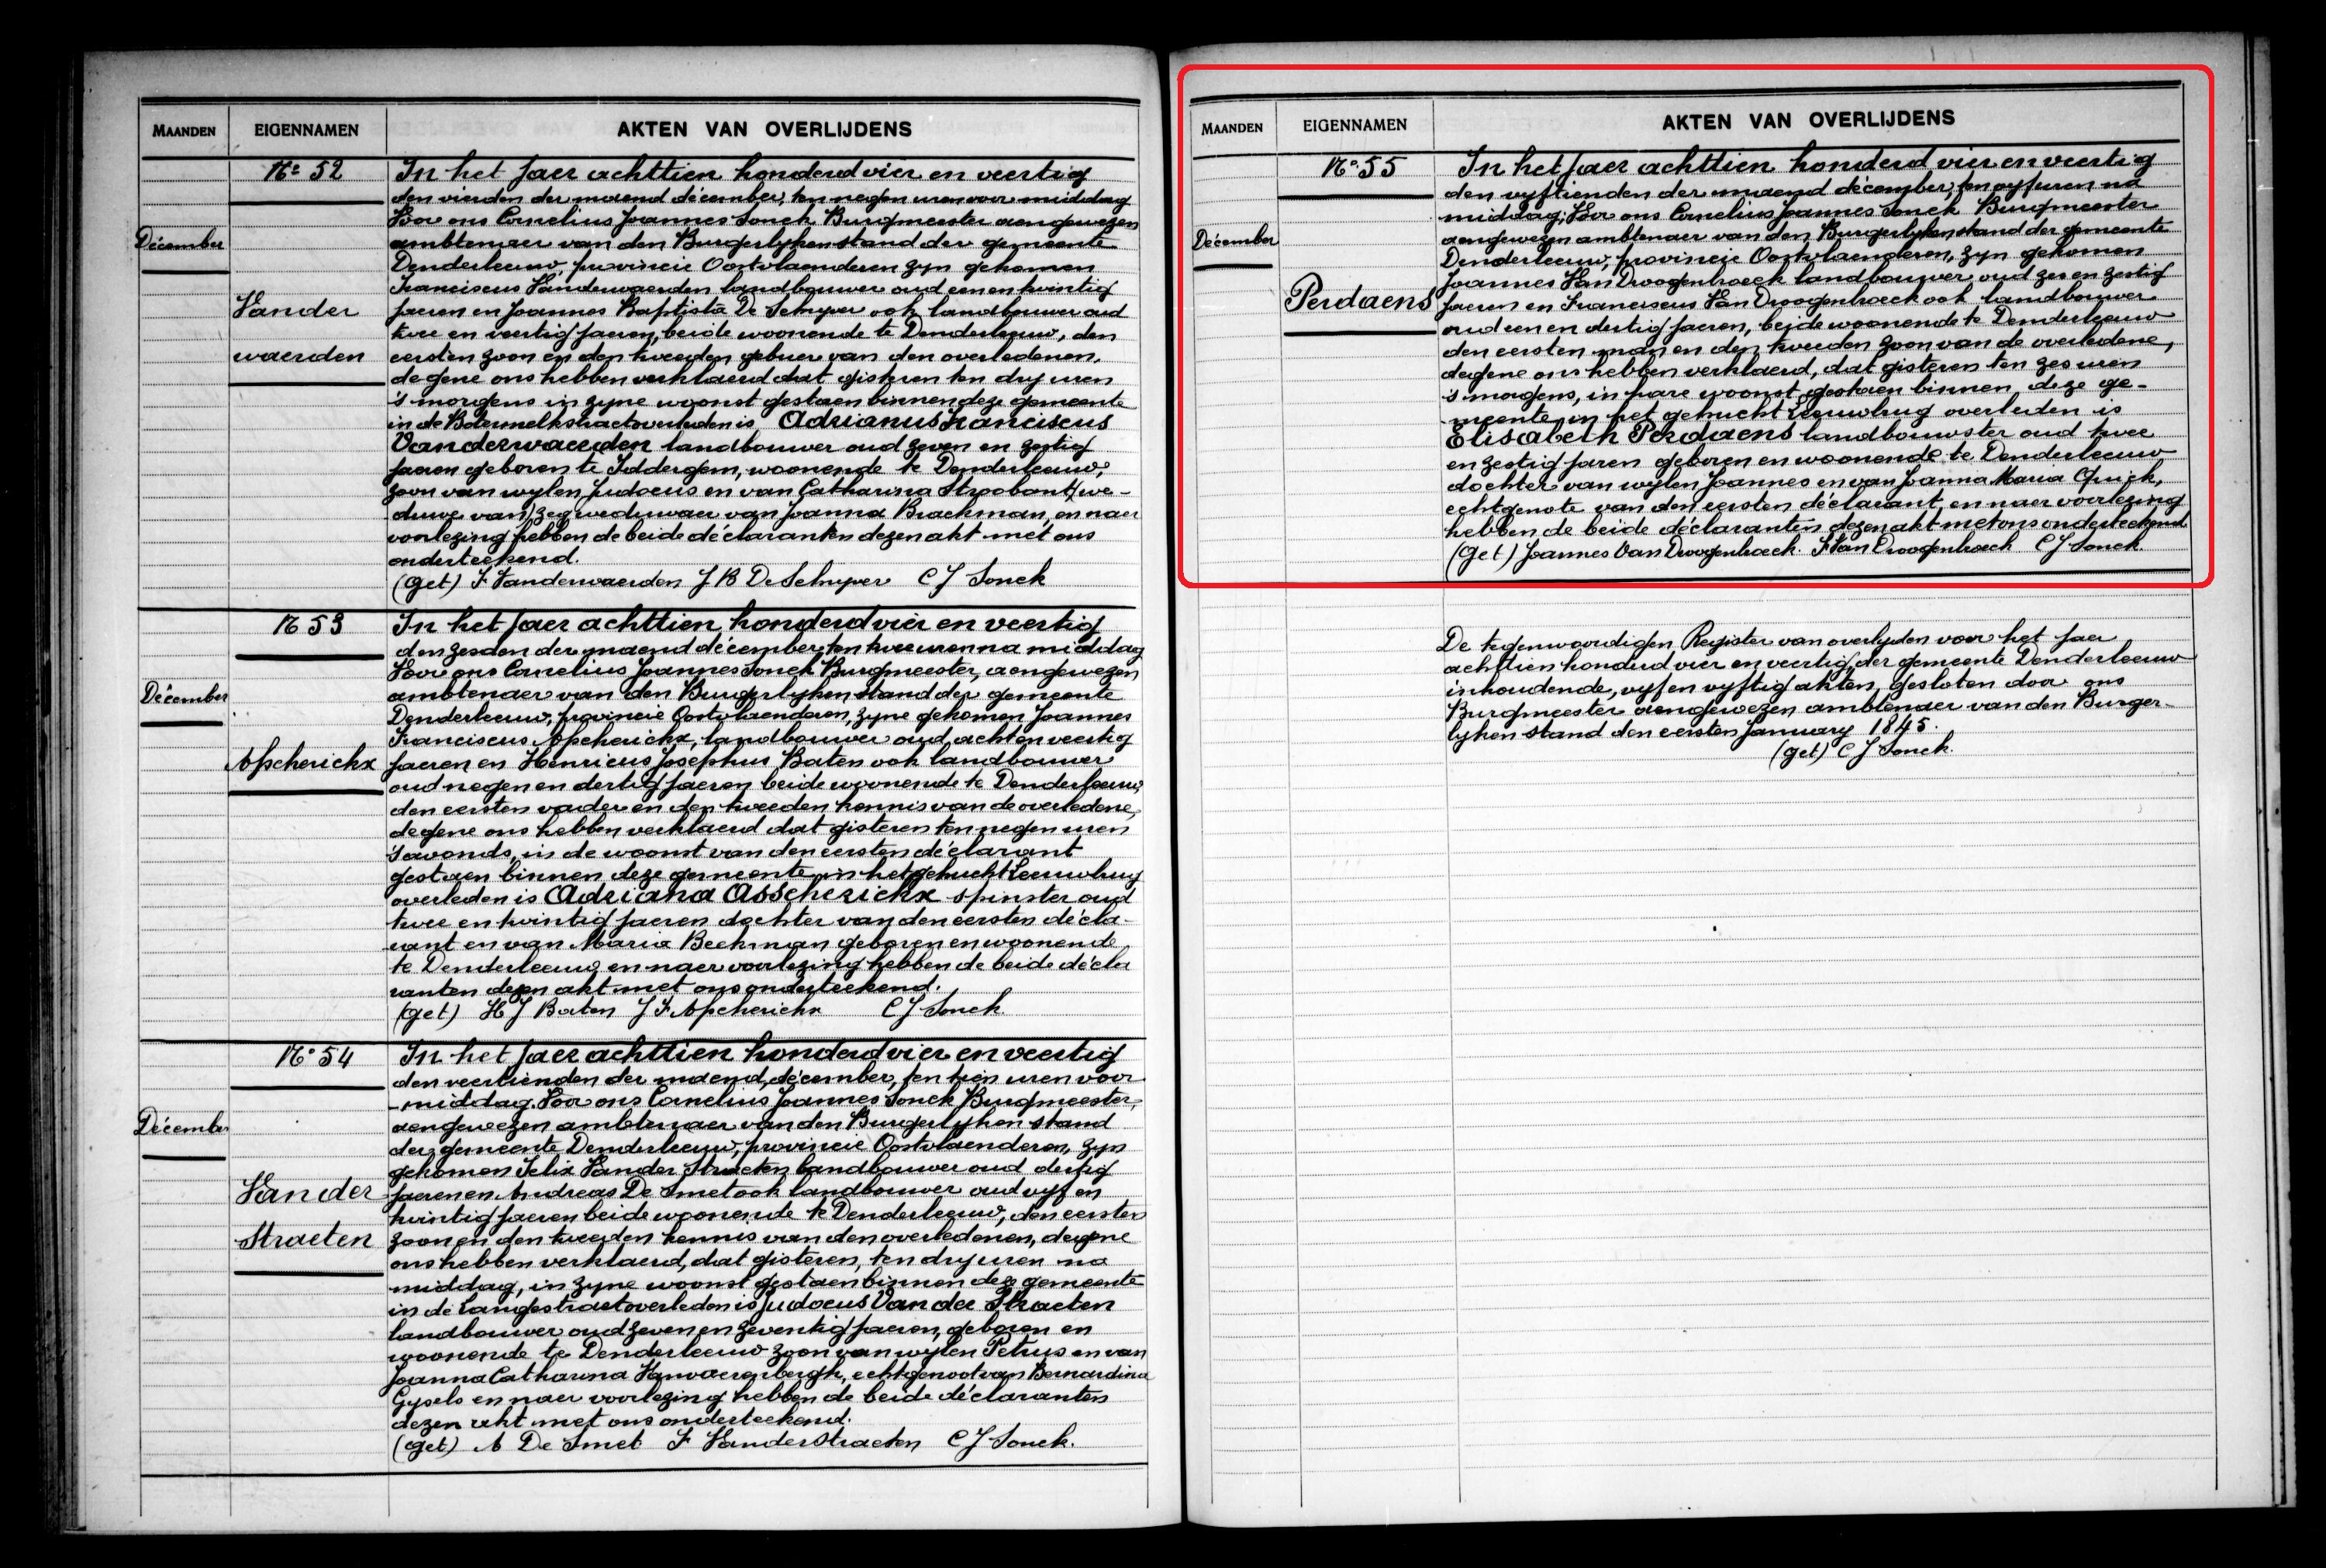 MAANDEN EIGENNAMEN AKTEN VAN OVERLIJDENS
No 52
December
Vander
waerden
In het jaer achttien honderd vier en veertig
den vierden der maend december, ten negen uren voor middag
Voor ons Cornelius Joannes Sonck Burgmeester aengewezen
amblenaer van den Burgerlyken stand der gemeente
Denderleeuw, provincie Oostvlaenderen zyn gekomen
Franciscus Vanderwaerden landbouwer oud een en twintig
jaeren en Joannes Baptista De Schryver ook landbouwer oud
twee en veertig jaeren, beide woonende te Denderleeuw, den
eersten zoon en den tweeden gebuer van den overledenen,
degene ons hebben verklaerd dat gisteren ten dry uren
's morgens in zyne woonst gestaen binnen deze gemeente
in de Botermelkstraet overleden is Adrianus Franciscus
Vanderwaerden landbouwer oud zeven en zestig
jaeren geboren te Iddergem, woonende te Denderleeuw,
zoon van wylen Judocus en van Catharina Stroobant (we-
duwe van) zeg weduwaer van Joanna Brackman, en naer
voorlezing hebben de beide déclaranten dezen akt met ons
onderteekend.
(get) F Vanderwaerden J B De Schryver C J Sonck
N 53
Décember
Asscherickx
In het jaer achttien honderd vier en veertig
den zesden der maend décember ten twee uren na middag
Voor ons Cornelius Joannes Sonck Burgmeester, aengewezen
amblenaer van den Burgerlyken stand der gemeente
Denderleeuw, provincie Oostvlaenderen, zyne gekomen Joannes
Franciscus Asscherickx, landbouwer oud acht en veertig
jaeren en Henricus Josephus Baten ook landbouwer
oud negen en dertig jaeren beide woonende te Denderleeuw,
den eersten vader en den tweeden kennis van de overledene,
degene ons hebben verklaerd dat gisteren ten negen uren
's avonds, in de woonst van den eersten déclarant
gestaen binnen deze gemeente in het gehucht Leeuwbrug
overleden is Adriana Asscherickx spinster oud
twee en twintig jaeren dochter van den eersten décla-
rant en van Maria Beeckman geboren en woonende
te Denderleeuw en naer voorlezing hebben de beide décla
ranten dezen akt met ons onderteekend.
(get) H J Baten J F Asscherickx C J Sonck
No 54
Décember
Van der
Straeten
In het jaer achttien honderd vier en veertig
den veertienden der maend, décember, ten tien uren voor
-middag. Voor ons Cornelius Joannes Sonck Burgmeester,
aengewezen amblenaer van den Burgerlyken stand
der gemeente Denderleeuw, provincie Oostvlaenderen, zyn
gekomen Felix Vander Straeten landbouwer oud dertig
jaeren en Andreas De Smet ook landbouwer oud vyf en
twintig jaeren beide woonende te Denderleeuw, den eersten
zoon en den tweeden kennis van den overledenen, degene
ons hebben verklaerd, dat gisteren, ten dry uren na
middag, in zyne woonst gestaen binnen deze gemeente
in de Langestraet overleden is Judocus Van der Straeten
landbouwer oud zeven en zeventig jaeren, geboren en
woonende te Denderleeuw zoon van wylen Petrus en van
Joanna Catharina Vanvaerenbergh, echtgenoot van Bernardina
Gysels en naer voorlezing hebben de beide déclaranten
dezen akt met ons onderteekend.
(get) A De Smet F Vanderstraeten C J Sonck.
MAANDEN EIGENNAMEN AKTEN VAN OVERLIJDENS
No 55
December
Perdaens
In het jaer achttien honderd vier en veertig
den vyftienden der maend décember, ten vyf uren na
middag; Voor ons Cornelius Joannes Sonck Burgmeester
aengewezen amblenaer van den Burgerlyken stand der gemeente
Denderleeuw, provincie Oostvlaenderen, zyn gekomen
Joannes Van Droogenbroeck landbouwer oud zes en zestig
jaeren en Franciscus Van Droogenbroeck ook landbouwer
oud een en dertig jaeren, beide woonende te Denderleeuw
den eersten man en den tweeden zoon van de overledene,
degene ons hebben verklaerd, dat gisteren ten zes uren
's morgens, in hare woonst gestaen binnen deze ge-
meente in het gehucht Leeuwbrug overleden is
Elisabeth Perdaens landbouwster oud twee
en zestig jaren geboren en woonende te Denderleeuw
dochter van wylen Joannes en van Joanna Maria Quick,
echtgenote van den eersten déclarant, en naer voorlezing
hebben de beide déclaranten dezen akt met ons onderteekend
(get) Joannes Van Droogenbroeck F Van Droogenbroeck C J Sonck
De tegenwoordigen Register van overlyden voor het jaer
achttien honderd vier en veertig, der gemeente Denderleeuw
inhoudende, vyf en vyftig akten, gesloten door ons
Burgmeester aengewezen amblenaer van den Burger-
lyken stand den eersten January 1845.
(get) C J Sonck.